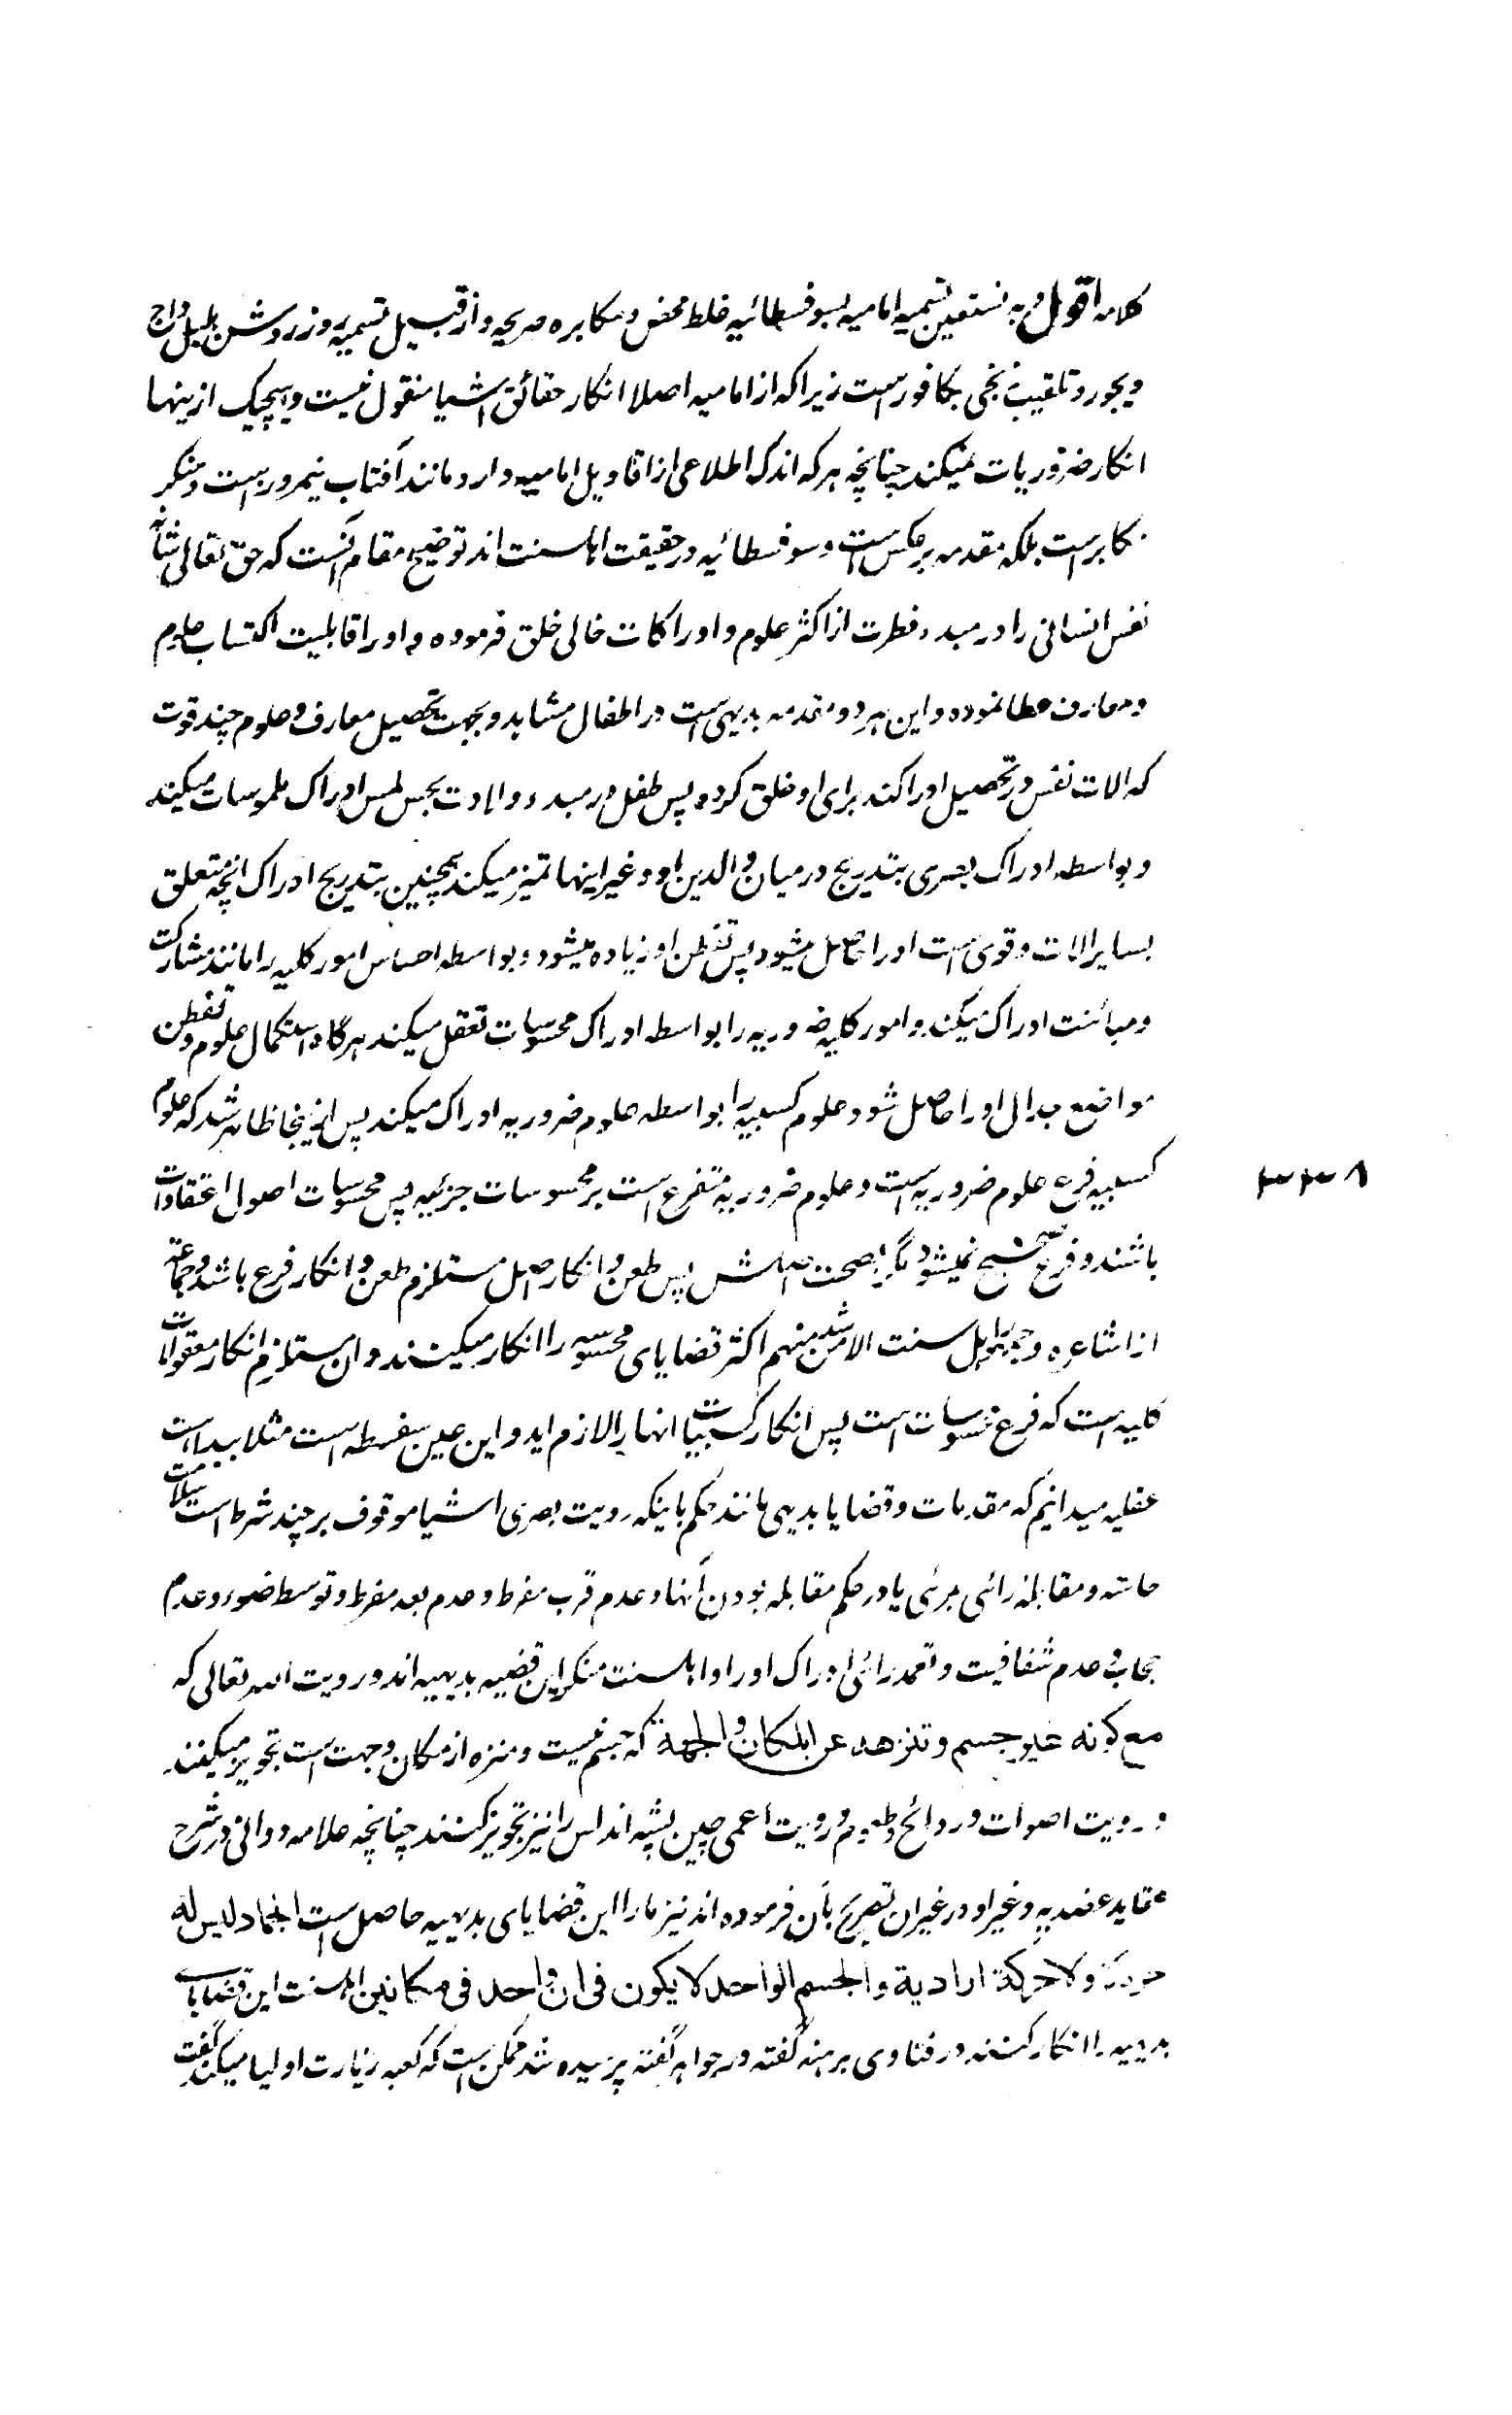 کلامه اقول و به نستعین تسمیه امامیه بسوفسطائیه غلط محض و مکابره صریحه و از قبیل تسمیه روز روشن بلیل داج
دیجور و تلقیب زنجی بکافور است زیرا که از امامیه اصلا انکار حقائق اشیا منقول نیست و هیچیک ازینها
انکار ضروریات نمیکند چنانچه هر که اندک اطلاعی از اقاویل امامیه دارد مانند آفتاب نیمروز است و منکر
مکابر است بلکه مقدمه برعکس است و سوفسطائیه در حقیقت اهلسنت اند توضیح مقام آنست که حق تعالی شانه
نفس انسانی را در مبدء فطرت از اکثر علوم و ادراکات خالی خلق فرموده و او را قابلیت اکتساب علوم
و معارف عطا نموده و این هر دو مقدمه بدیهی است در اطفال مشاهد و بجهت تحصیل معارف و علوم چند قوت
که الات نفس در تحصیل ادراکند برای او خلق کرده پس طفل در مبدء ولادت بحس لمس ادراک ملموسات میکند
و بواسطه ادراک بصری بتدریج درمیان والدین او و غیر اینها تمیز میکند همچنین بتدریج ادراک انچه متعلق
بسایر الات و قوی است او را حاصل میشود پس تفطن او زیاده میشود و بواسطه احساس امور کلیه را مانند مشارکت
و مبائنت ادراک میکند و امور کلیه ضروریه را بواسطه ادراک محسوسات تعقل میکند هرگاه استکمال علوم و تفطن
مواضع جدالی او را حاصل شود علوم کسبیه را بواسطه علوم ضروریه ادراک میکند پس از ینجا ظاهر شد که علوم
کسبیه فرع علوم ضروریه است و علوم ضروریه متفرع است بر محسوسات جزئیه پس محسوسات اصول اعتقادات
۳۳۸
باشند و فرع صحیح نمیشود مگر بصحت اصلش پس طعن و انکار اصل مستلزم طعن و انکار فرع باشد و جماعتی
از اشاعره و جمهور اهل سنت الا من شذ منهم اکثر قضایای محسوسه را انکار میکنند و ان مستلزم انکار معقولات
کلیه است که فرع محسوسات است پس انکار کسبیات انها را لازم اید و این عین سفسطه است مثلا ببداهت
عقلیه میدانیم که مقدمات و قضایا بدیهی مانند حکم باینکه رویت بصری اشیا موقوف بر چند شرط است سلامت
حاسه و مقابله رائی بمرئی یا در حکم مقابله بودن آنها و عدم قرب مفرط و عدم بعد مفرط و توسط ضوء و عدم
حجاب و عدم شفافیت و تعمد رائی ادراک او را و اهلسنت منکر این قضیه بدیهیه اند و رویت الله تعالی که
مع کونه غیر جسم و تنزهه عن المکان و الجهة که جسم نیست و منزه از مکان و جهت است تجویز میکنند
و رویت اصوات و روائح و طعوم و رویت اعمی چین پشه اندلس را نیز تجویز کنند چنانچه علامه دوانی در شرح
عقاید عضدیه و غیر او در غیر ان تصریح بآن فرموده اند نیز ما را این قضایای بدیهیه حاصل است الجماد لیس له
حیوة و لا حرکة ارادیة و الجسم الواحد لا یکون فی ان واحد فی مکانین اهلسنت این قضایای
بدیهیه را انکار کنند در فتاوی برهنه گفته در جواهر گفته پرسیده شد ممکن است که کعبه زیارت اولیا میکند گفت